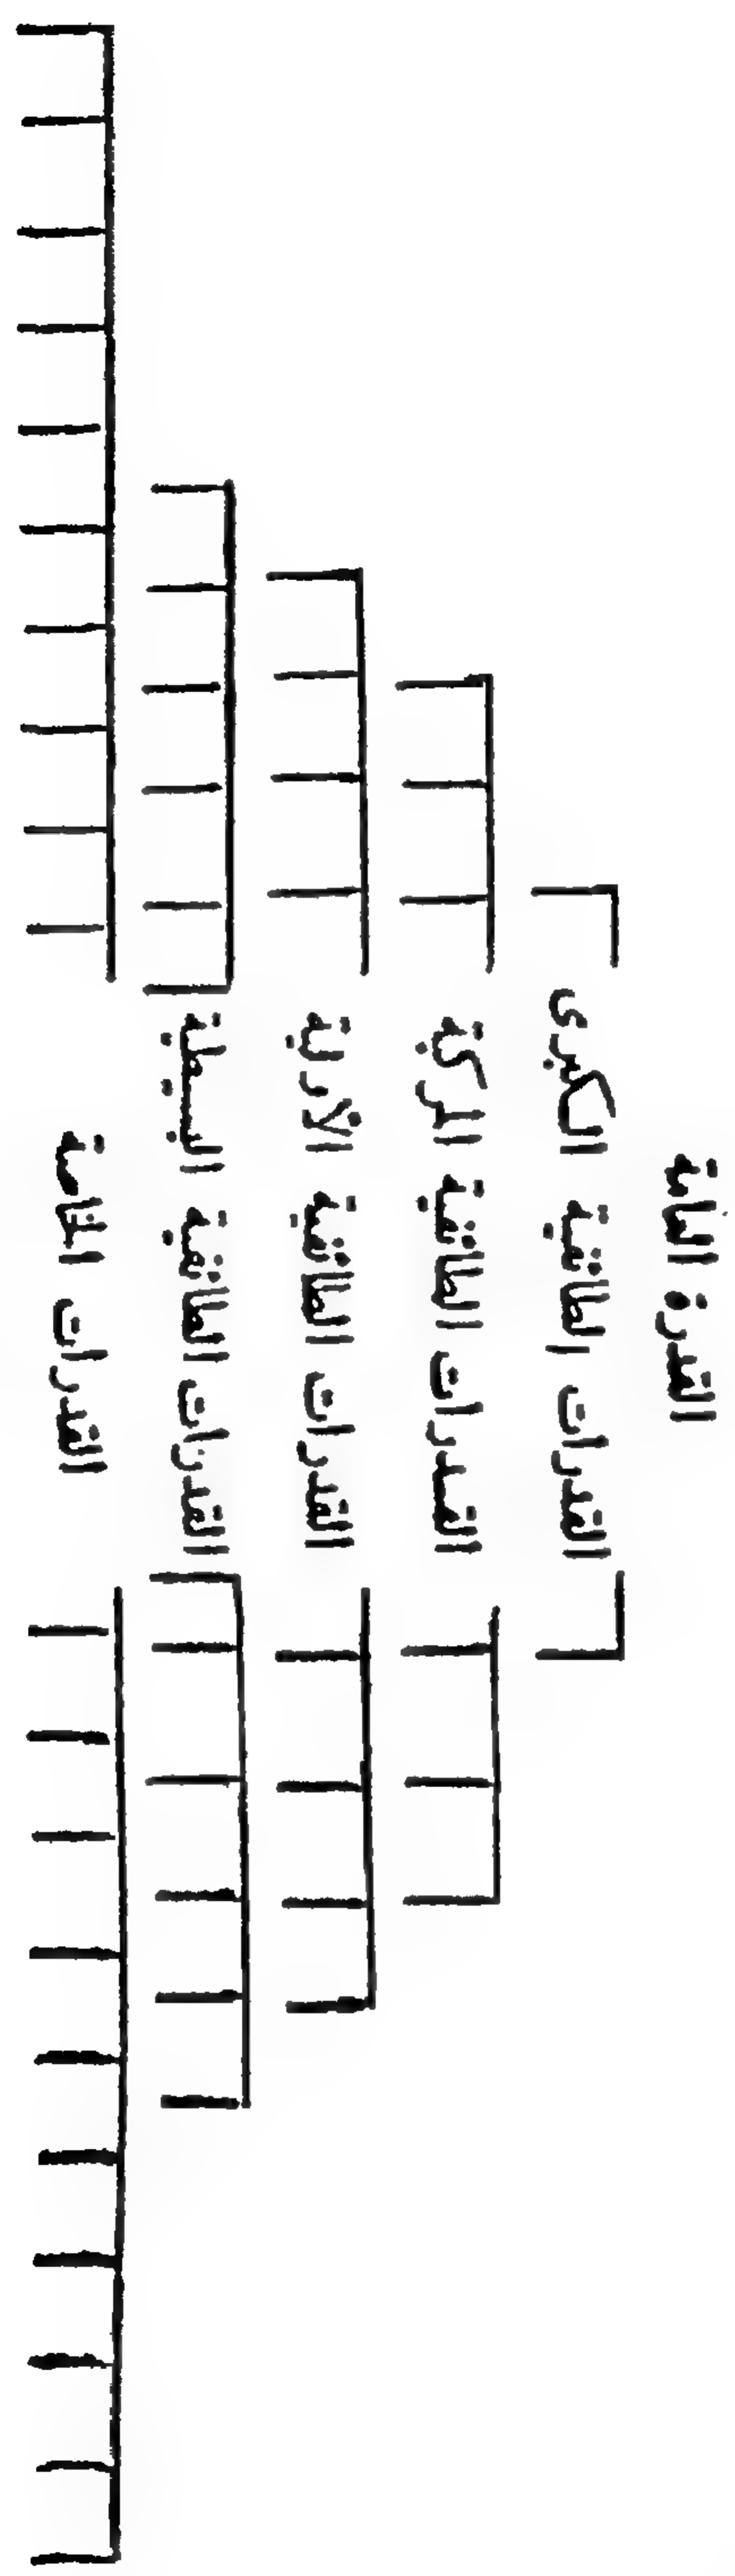 القدرة العامة
القدرات الطائفية الكبرى
القدرات الطائفية المركبة
القدرات الطائفية الأولية
القدرات الطائفية البسيطة
القدرات الخاصة